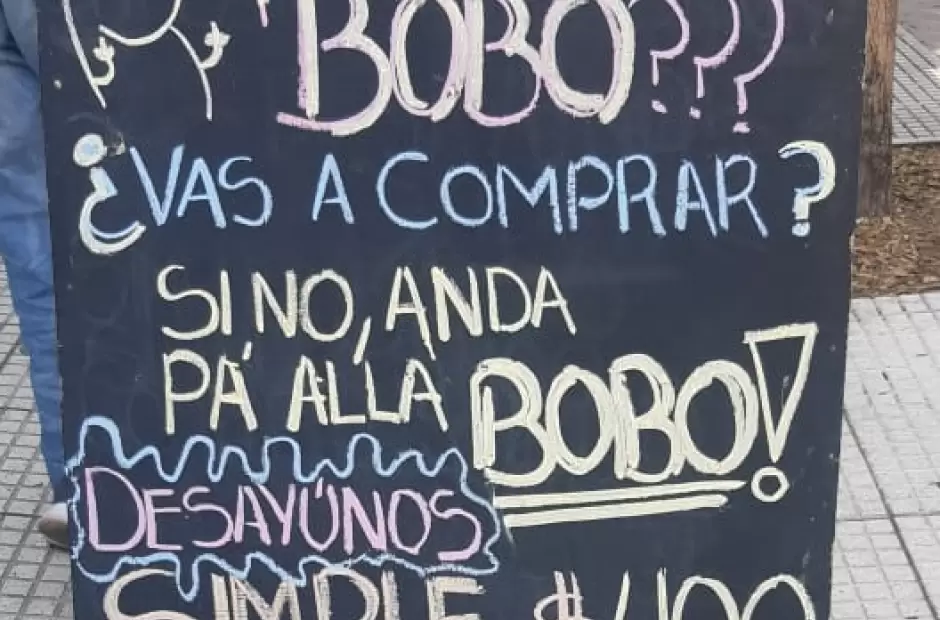 BOBO???
¿VAS A COMPRAR?
SI NO, ANDA
PA' ALLA BOBO!
DESAYÚNOS
SIMPLE $400